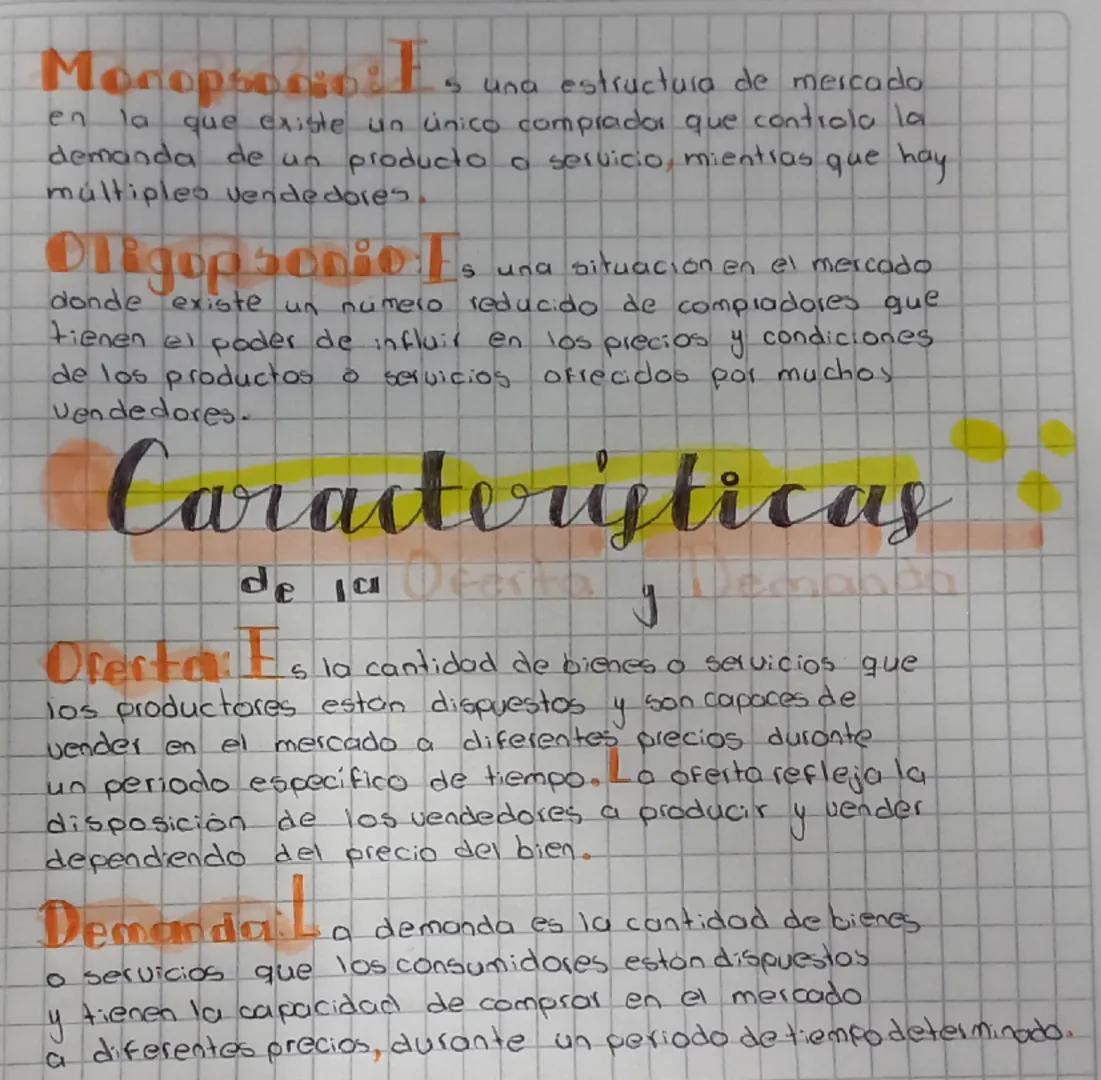 Monopsonio: Es una estructura de mercado
en la que existe un único comprador que controla la
demanda de un producto o servicio, mientras que hay
múltiples vendedores.
Oligopsonio: Es una situación en el mercado
donde existe un número reducido de compradores que
tienen el poder de influir en los precios y condiciones
de los productos o servicios ofrecidos por muchos
vendedores.
Características
de la Oferta y Demanda
Oferta: Es la cantidad de bienes o servicios que
los productores están dispuestos y son capaces de
vender en el mercado a diferentes precios durante
un periodo específico de tiempo. La oferta refleja la
disposición de los vendedores a producir y vender
dependiendo del precio del bien.
Demanda: La demanda es la cantidad de bienes
o servicios que los consumidores están dispuestos
y tienen la capacidad de comprar en el mercado
a diferentes precios, durante un periodo de tiempo determinado.